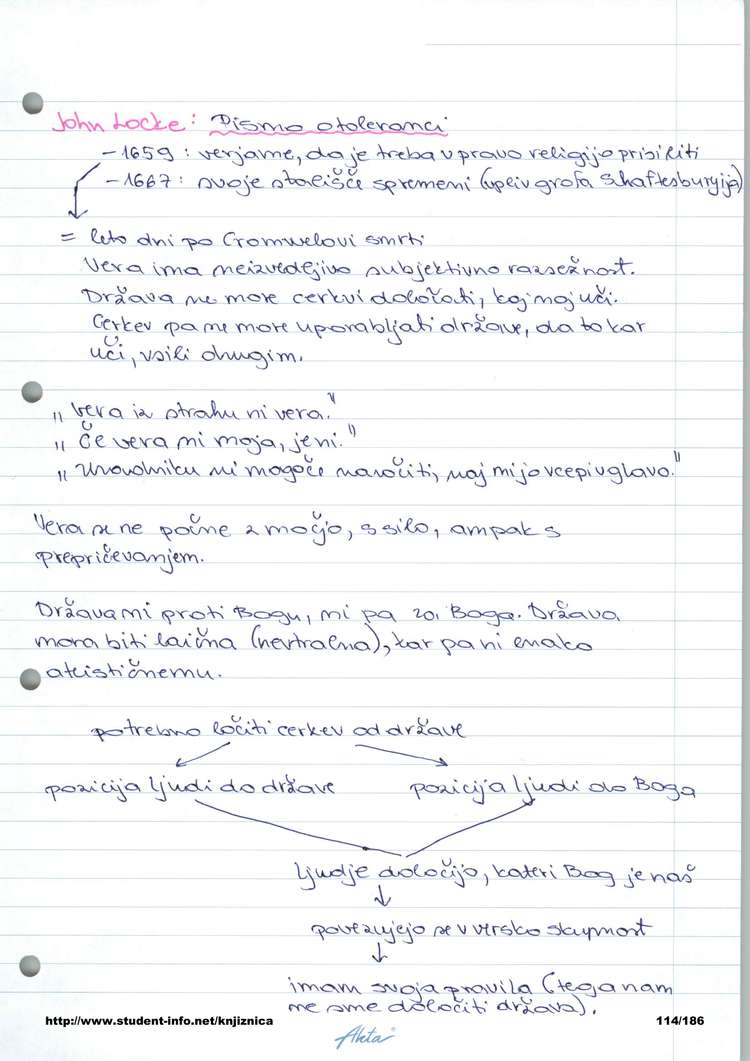 John Locke: Pismo o toleranci
- 1659: verjame, da je treba v pravo religijo prisiliti
- 1667: svoje stališče spremeni (vpliv grofa Shaftesburyija)
= leto dni po Cromwelovi smrti
Vera ima neizvedljivo subjektivno razsežnost.
Država ne more cerkvi določati, kaj naj uči.
Cerkev pa ne more uporabljati države, da to kar
uči, vsili drugim.
"Vera iz strahu ni vera."
"Če vera ni moja, je ni."
" ni mogoče naročiti, naj mi jo vcepi v glavo."
Vera se ne počne z močjo, s silo, ampak s
prepričevanjem.
Država ni proti Bogu, ni pa za Boga. Država
mora biti laična (nevtralna), kar pa ni enako
ateističnemu.
potrebno ločiti cerkev od države
pozicija ljudi do države pozicija ljudi do Boga
ljudje določijo, kateri Bog je naš
povezujejo se v versko skupnost
imam svoja pravila (tega nam
ne sme določiti država).
http://www.student-info.net/knjiznica 114/186
Akta